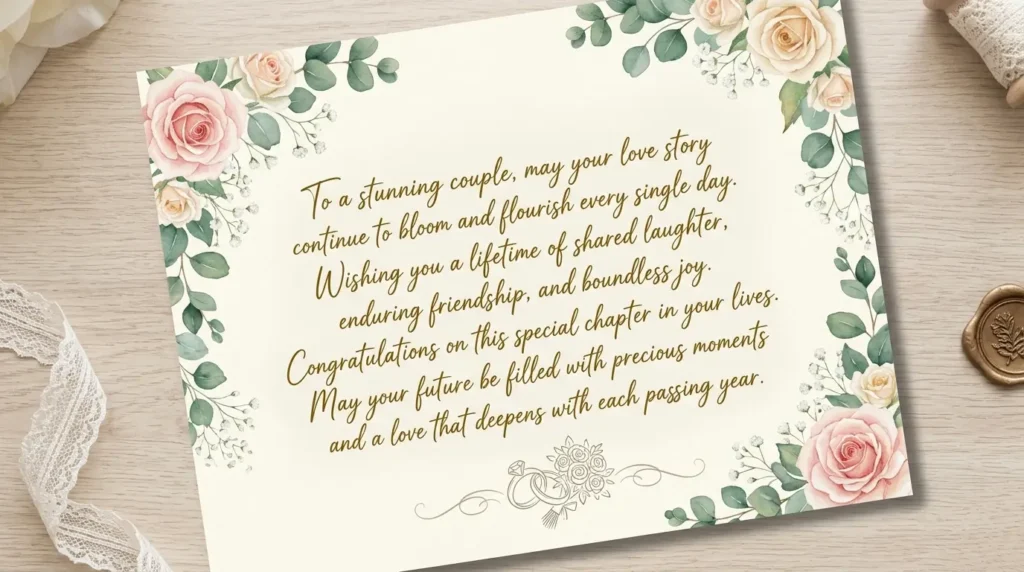 To a stunning couple, may your love story
continue to bloom and flourish every single day.
Wishing you a lifetime of shared laughter,
enduring friendship, and boundless joy.
Congratulations on this special chapter in your lives.
May your future be filled with precious moments
and a love that deepens with each passing year.